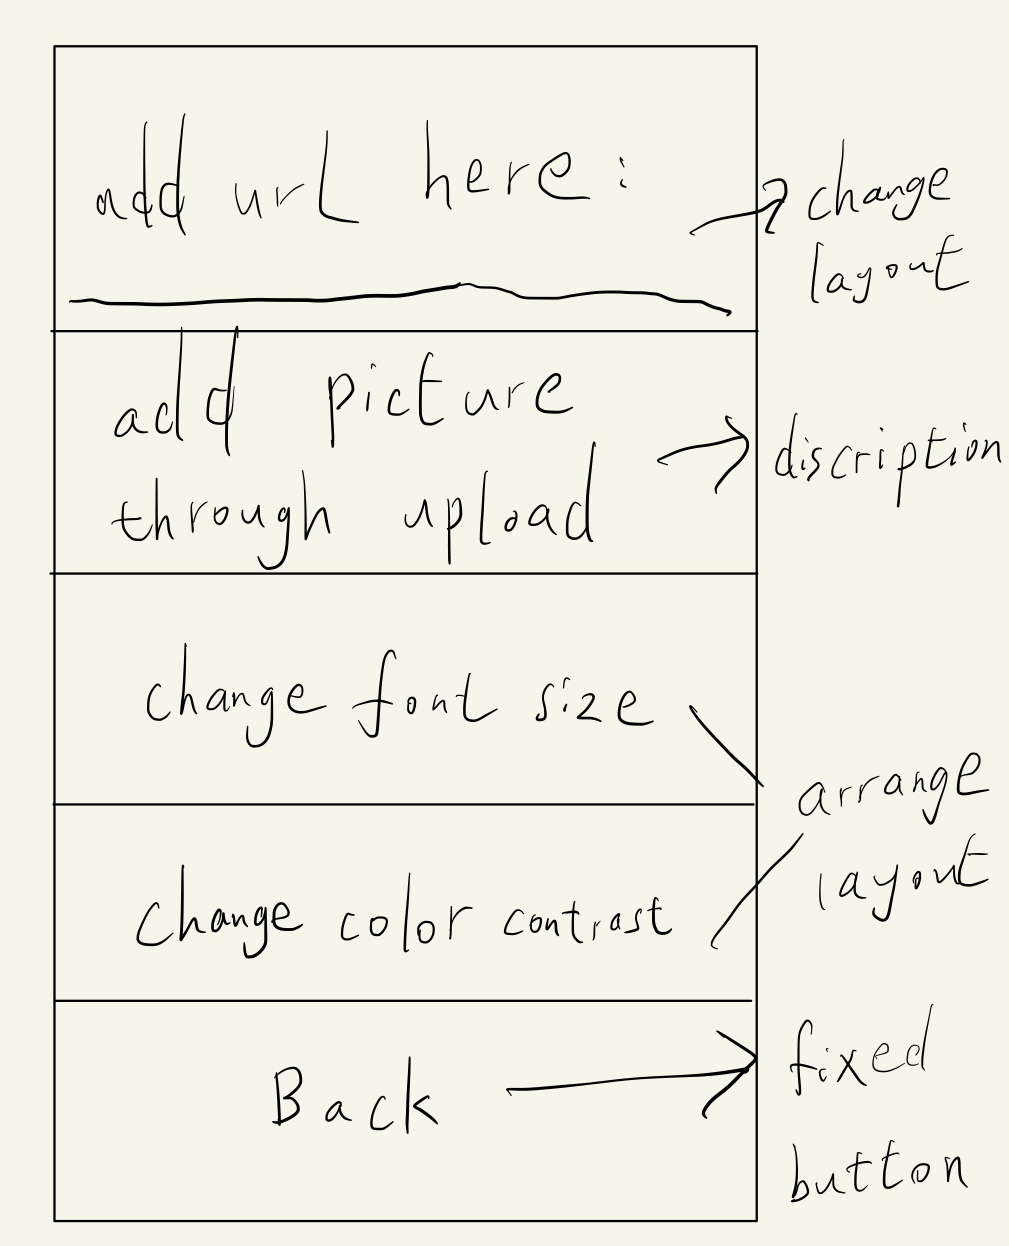 add url here:
change
layout
add picture
through upload
discription
change font size
arrange
layout
change color contrast
Back
fixed
button